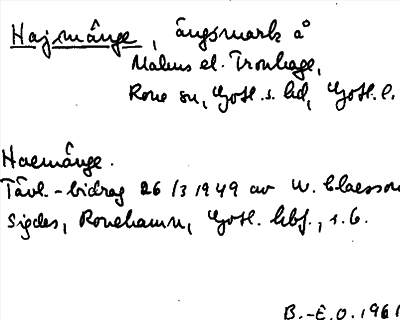 Hajmänge, ängsmark å
Malms el. Tronhage,
Rone sn, Gotl. s. hd, Gotl. l.
Haemänge.
Tävl.-bidrag 26/3 1949 av W. Claesson
Sigdes, Ronehamn, Gotl. hbf., s. 6.
B.-E.O. 1961